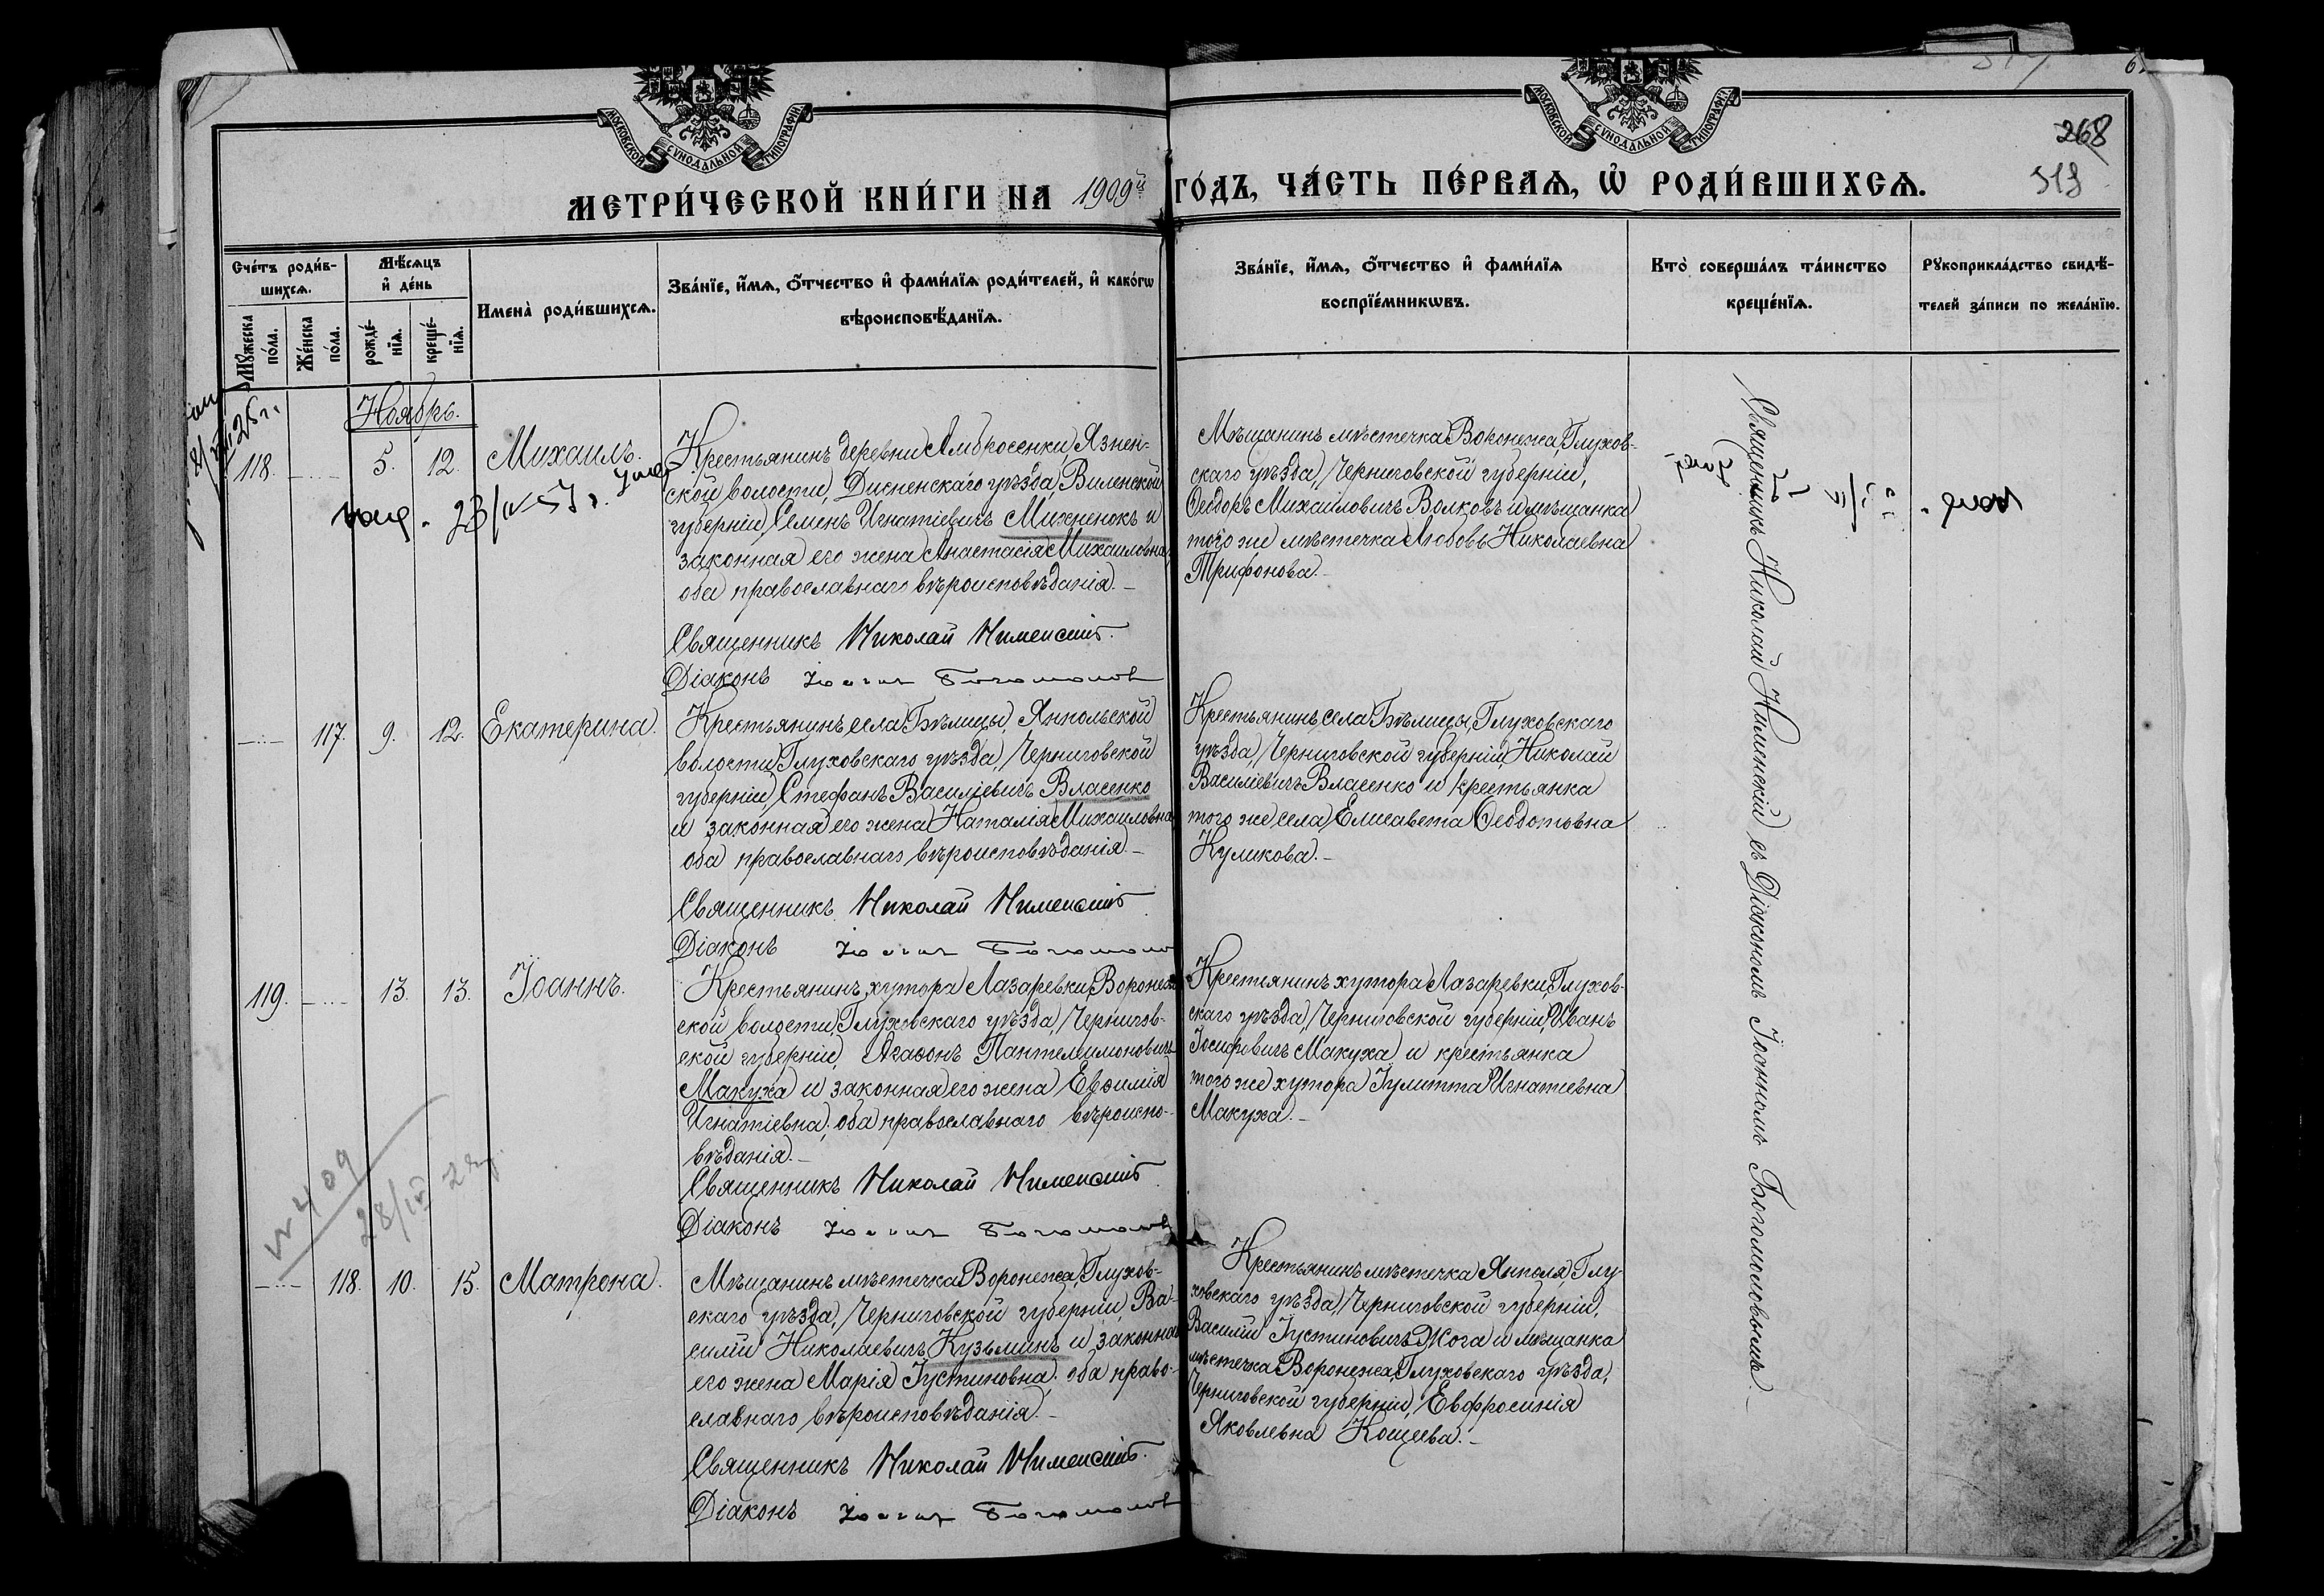 МОСКОВСКОЙ СУНОДАЛЬНОЙ ТИПОГРАФІИ
МОСКОВСКОЙ СУНОДАЛЬНОЙ ТИПОГРАФІИ
268
МЕТРИ́ЧЕСКОЙ КНИ́ГИ НА 1909й ГО́ДЪ, ЧА́СТЬ ПЕ́РВАѦ, Ѡ҆ РОДИ́ВШИХСѦ.
Сче́тъ роди́в-
шихсѧ.
Мꙋ́жеска
по́ла.
Же́нска
по́ла.
Мѣ́сѧцъ
и҆ де́нь
рожде́-
нїѧ.
креще́-
нїѧ.
Имена̀ роди́вшихсѧ.
Зва́нїе, и҆́мѧ, ѻ҆́тчество и҆ фами́лїѧ роди́телей, и҆ како́гѡ
вѣроисповѣ́данїѧ.
Зва́нїе, и҆́мѧ, ѻ҆́тчество и҆ фами́лїѧ
воспрїе́мникѡвъ.
Кто̀ соверша́лъ та́инство
креще́нїѧ.
Рꙋкоприкла́дство свидѣ́-
телей за́писи по жела́нїю.
Ноябрь.
118.
5.
12.
Михаилъ.
Крестьянинъ деревни Амбросенки, Язнен-
ской волости, Дисненскаго уѣзда, Виленской
губерніи, Семенъ Игнатіевичъ Михненокъ и
законная его жена Анастасія Михаиловна,
оба православнаго вѣроисповѣданія.
Священникъ Николай Нименскій.
Діаконъ Іоаннъ Богомолов
Мѣщанинъ мѣстечка Воронежа, Глухов-
скаго уѣзда, Черниговской губерніи,
Ѳеодоръ Михаиловичъ Волковъ и мѣщанка
того же мѣстечка Любовь Николаевна
Трифонова.
117.
9.
12.
Екатерина.
Крестьянинъ села Бѣлицы, Янпольской
волости, Глуховскаго уѣзда, Черниговской
губерніи, Стефанъ Василіевичъ Власенко
и законная его жена Наталія Михаиловна,
оба православнаго вѣроисповѣданія.
Священникъ Николай Нименскій
Діаконъ Іоаннъ Богомолов
Крестьянинъ села Бѣлицы, Глуховскаго
уѣзда, Черниговской губерніи, Николай
Василіевичъ Власенко и крестьянка
того же села, Елисавета Ѳеодотовна
Куликова.
119.
13.
13.
Іоаннъ.
Крестьянинъ хутора Лазаревки, Воронеж-
ской волости, Глуховскаго уѣзда, Чернигов-
ской губерніи, Агаѳонъ Пантелеимоновичъ
Макуха и законная его жена Евѳимія
Игнатіевна, оба православнаго вѣроиспо-
вѣданія.
Священникъ Николай Нименскій
Діаконъ Іоаннъ Богомолов
Крестьянинъ хутора Лазаревки, Глухов-
скаго уѣзда, Черниговской губерніи, Иванъ
Іосифовичъ Макуха и крестьянка
того же хутора Іулитта Игнатіевна
Макуха.
N 409
28/IV 28г.
118.
10.
15.
Матрона.
Мѣщанинъ мѣстечка Воронежа, Глухов-
скаго уѣзда, Черниговской губерніи, Ва-
силій Николаевичъ Кузьминъ и законная
его жена Марія Іустиновна, оба право-
славнаго вѣроисповѣданія.
Священникъ Николай Нименскій.
Діаконъ Іоаннъ Богомолов
Крестьянинъ мѣстечка Янполя, Глу-
ховскаго уѣзда, Черниговской губерніи,
Василій Іустиновичъ Жога и мѣщанка
мѣстечка Воронежа, Глуховскаго уѣзда,
Черниговской губерніи, Евфросинія
Яковлевна Кощеева.
Священникъ Николай Нименскій съ Діакономъ Іоанномъ Богомоловымъ.